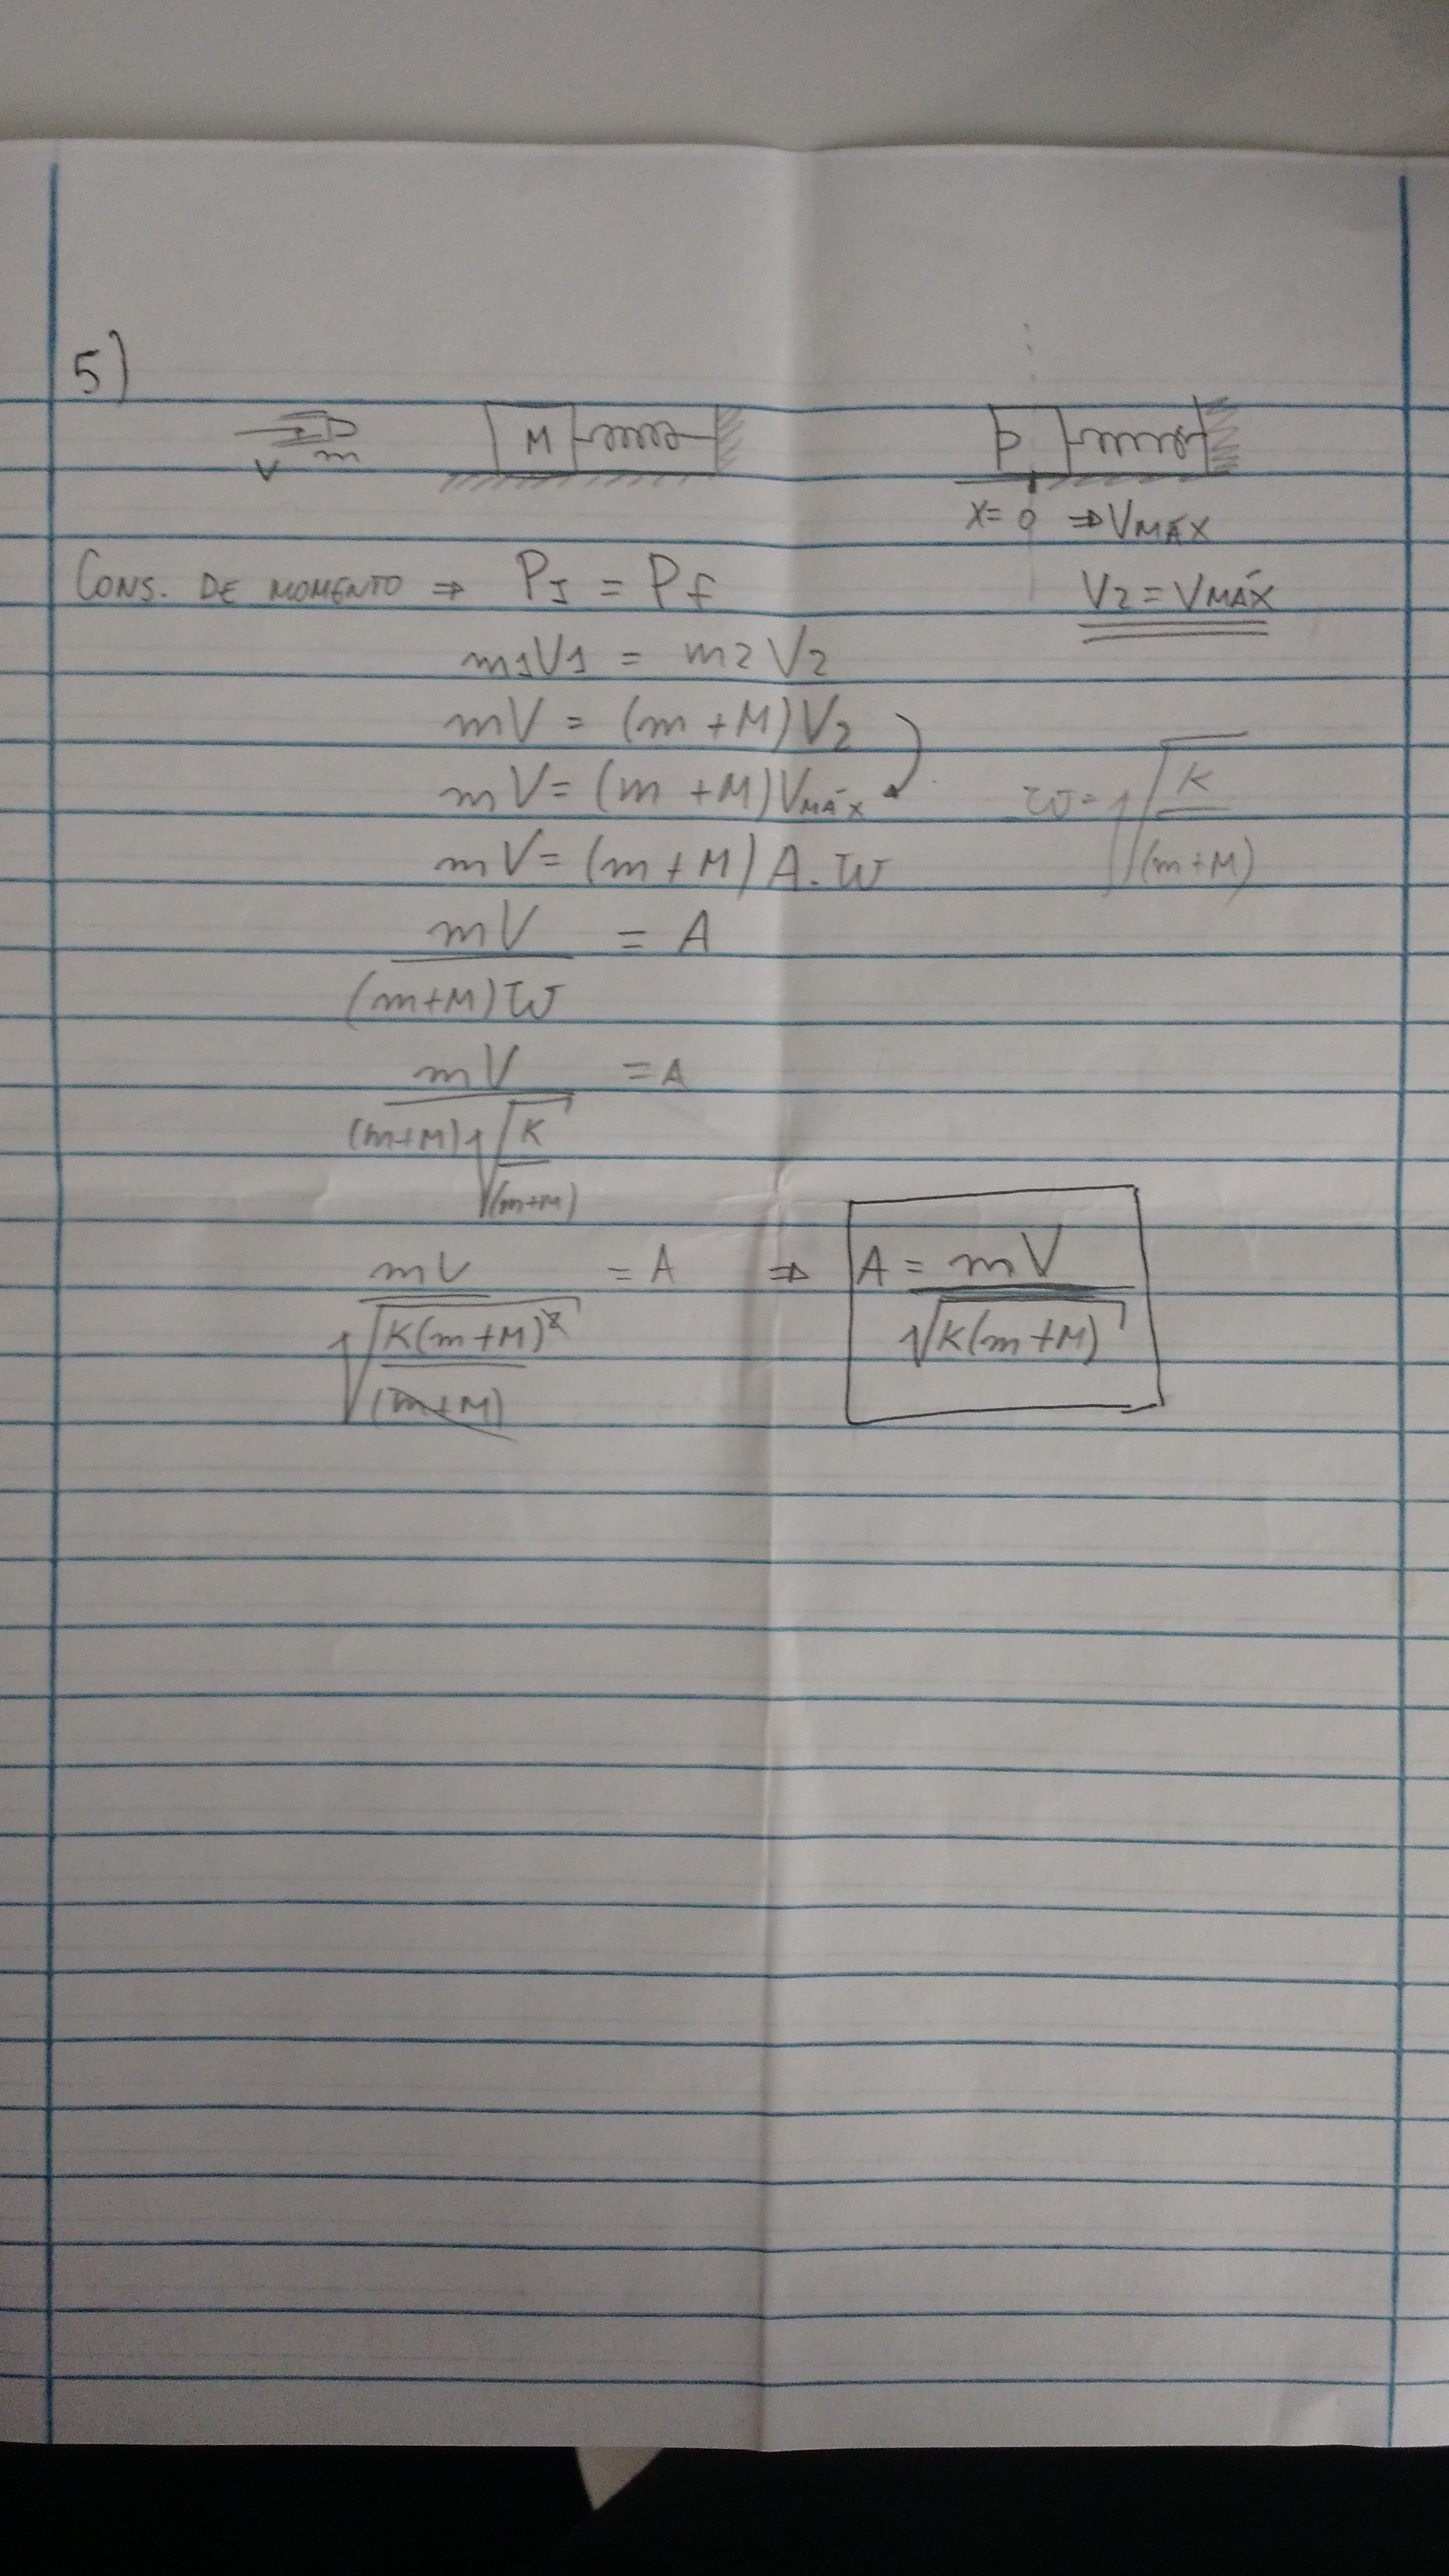 5)
V m M
x = 0 ⇒ VMÁX
CONS. DE MOMENTO ⇒ PI = Pf
V2 = VMÁX
m1V1 = m2V2
mV = (m + M)V2
mV = (m + M)VMÁX
mV = (m + M) A . W
W = √(K/(m+M))
mV/((m+M)W) = A
mV/((m+M)√(K/(m+M))) = A
mV/√(K(m+M)²/(m+M)) = A ⇒ A = mV/√(K(m+M))